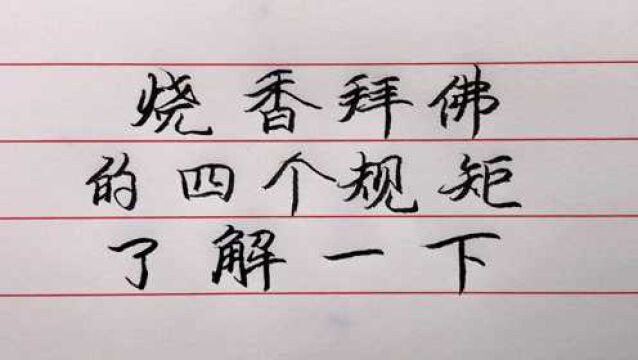 烧香拜佛
的四个规矩
了解一下